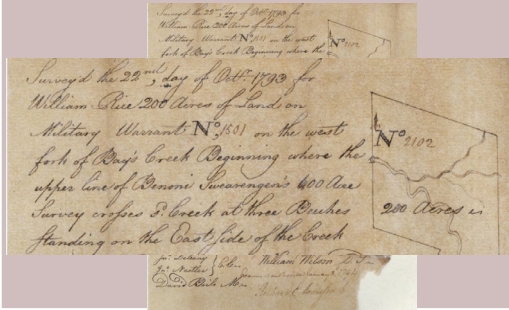 Survey'd the 22nd, day of Octr. 1793 for
William Rice 200 Acres of Land on
Military Warrant No. 1501 on the west
fork of Bay's Creek Beginning where the
Survey'd the 22nd, day of Octr. 1793 for
William Rice 200 Acres of Land on
Military Warrant No. 1501 on the west
fork of Bay's Creek Beginning where the
upper line of Benoni Swearengen's 400 Acre
Survey crosses sd. Creek at three Beeches
standing on the East side of the Creek
No. 2102
No. 2102
200 Acres
William Wilson D. S.
David